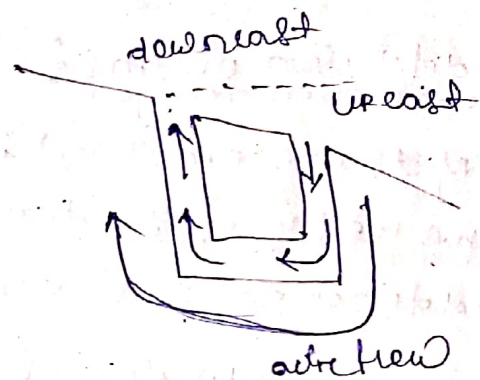 downcast
upcast
airflow